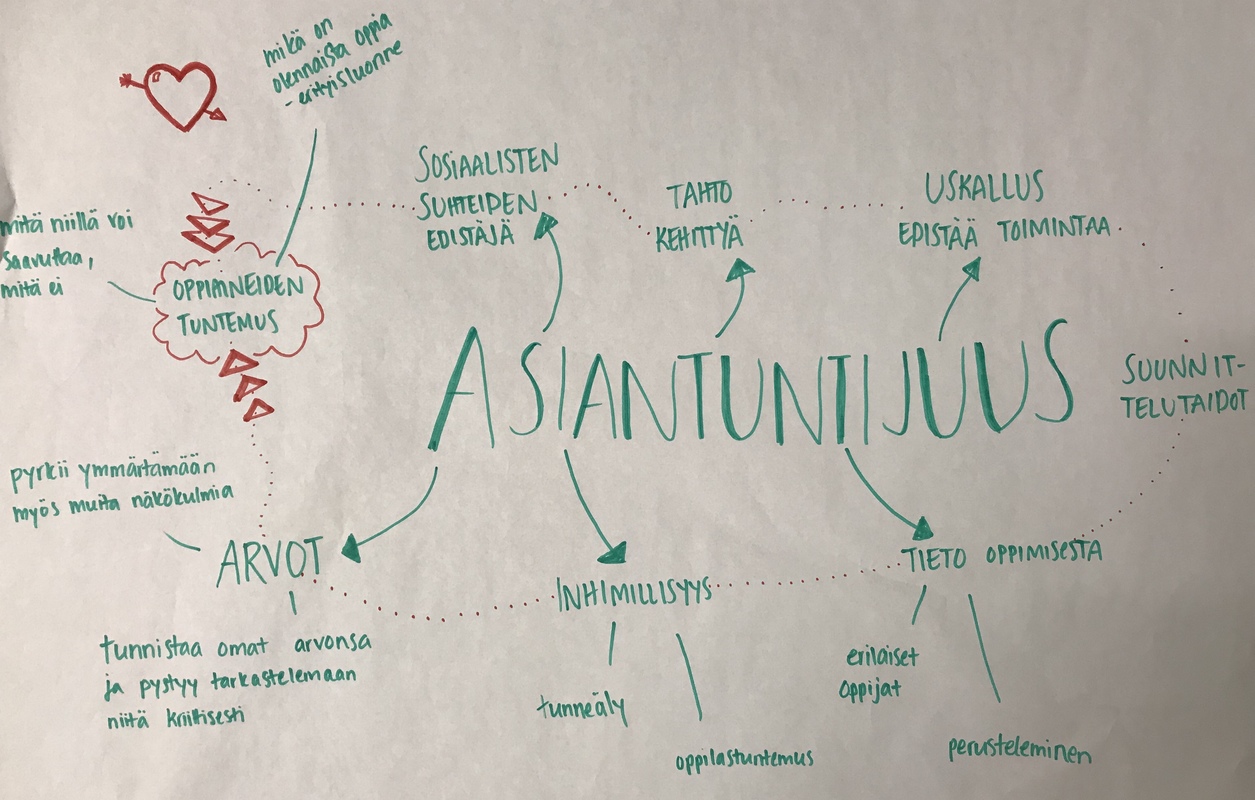 mikä on
olennaista oppia
- erityisluonne
SOSIAALISTEN
SUHTEIDEN
EDISTÄJÄ
TAHTO
KEHITTYÄ
USKALLUS
EDISTÄÄ TOIMINTAA
mitä niillä voi
saavuttaa,
mitä ei
OPPIAINEIDEN
TUNTEMUS
ASIANTUNTIJUUS
SUUNNIT-
TELUTAIDOT
pyrkii ymmärtämään
myös muita näkökulmia
ARVOT
INHIMILLISYYS
TIETO OPPIMISESTA
tunnistaa omat arvonsa
ja pystyy tarkastelemaan
niitä kriittisesti
tunneäly
oppilastuntemus
erilaiset
oppijat
perusteleminen